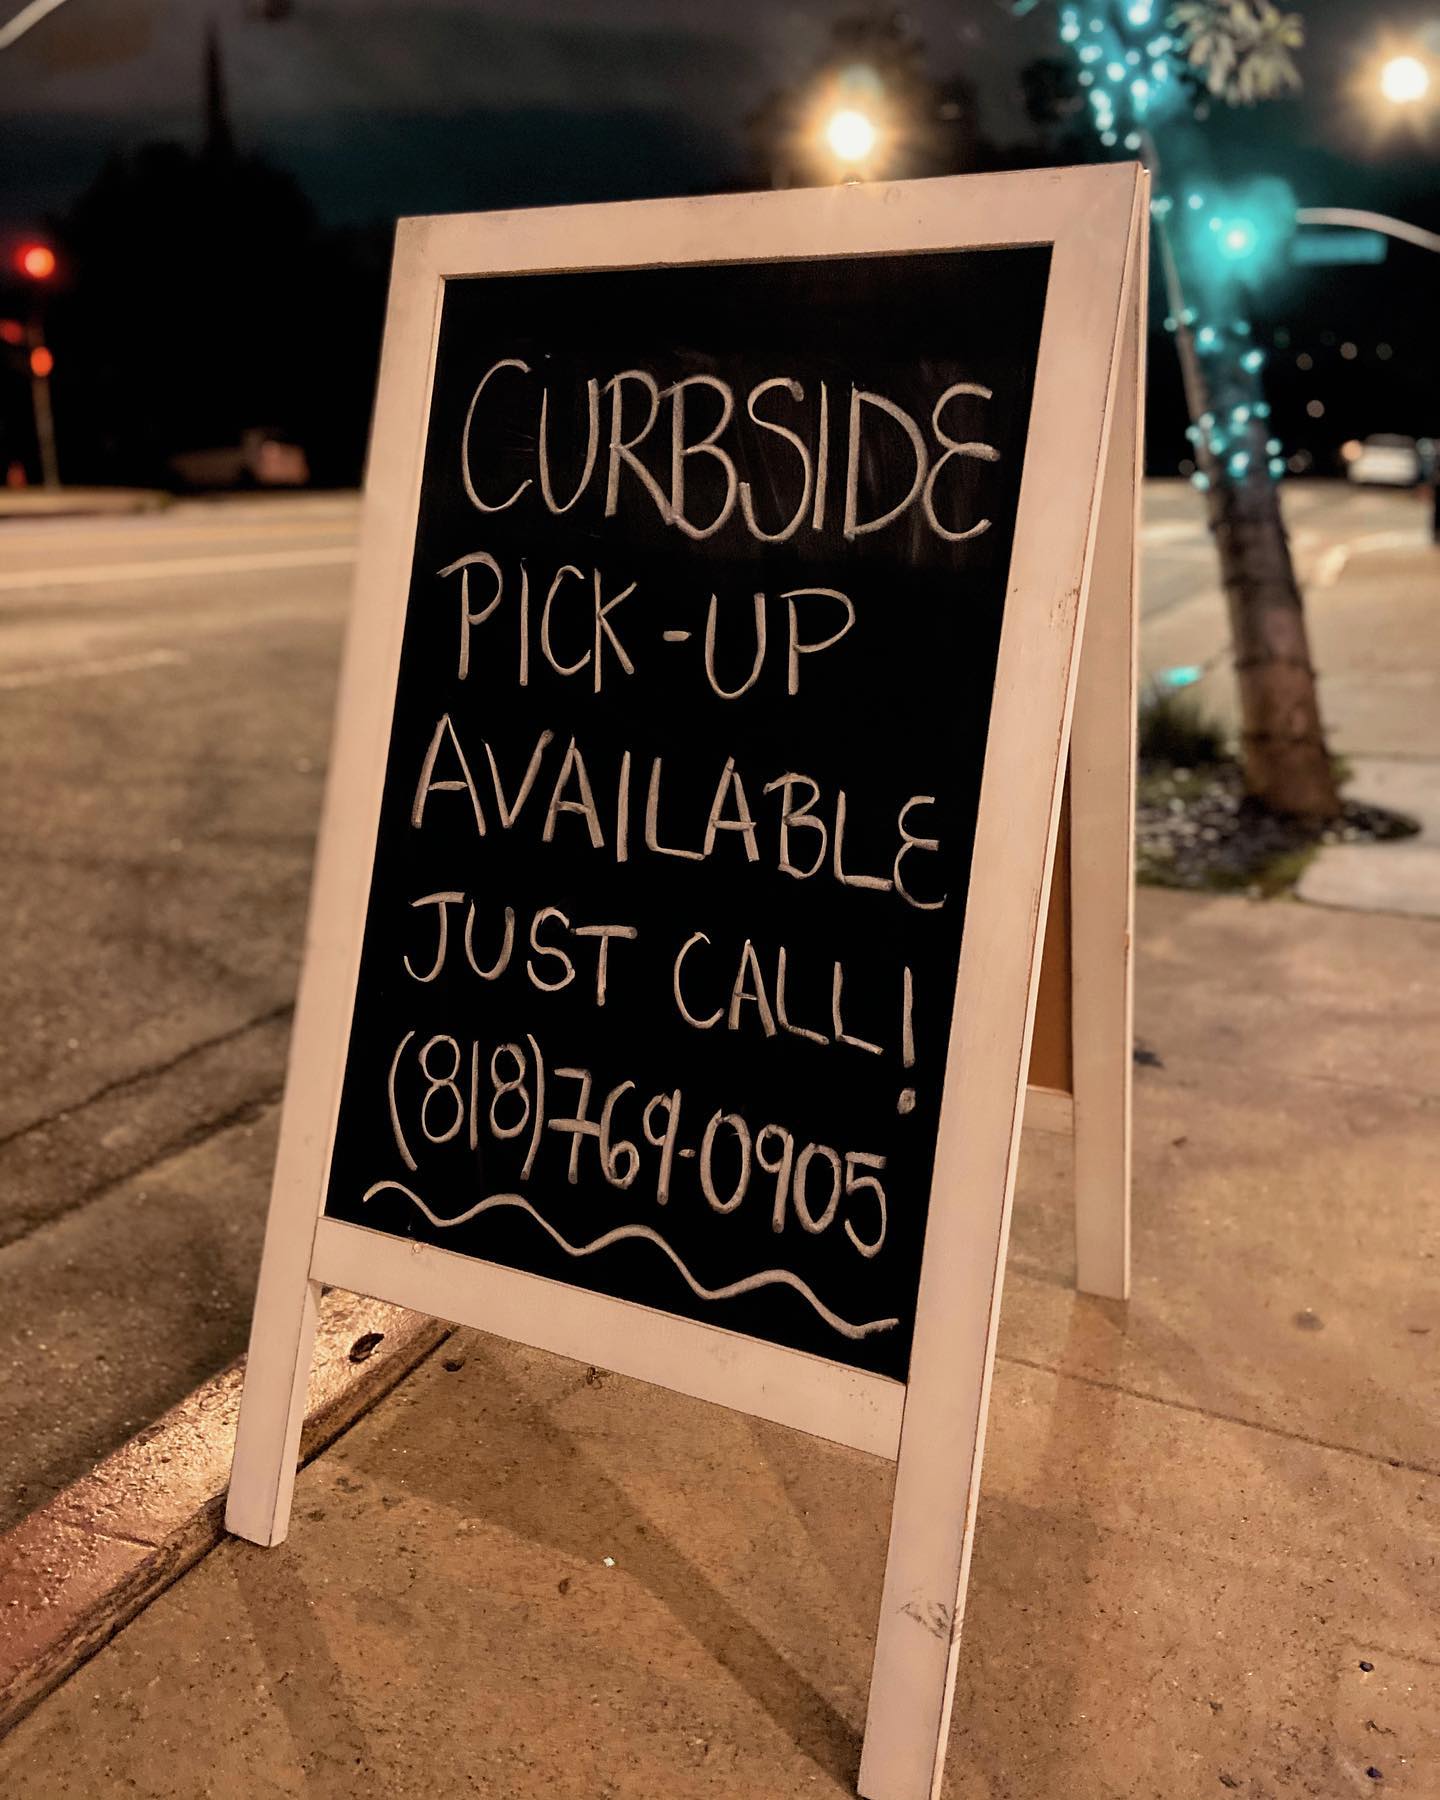 CURBSIDE
PICK-UP
AVAILABLE
JUST CALL!
(818)769-0905